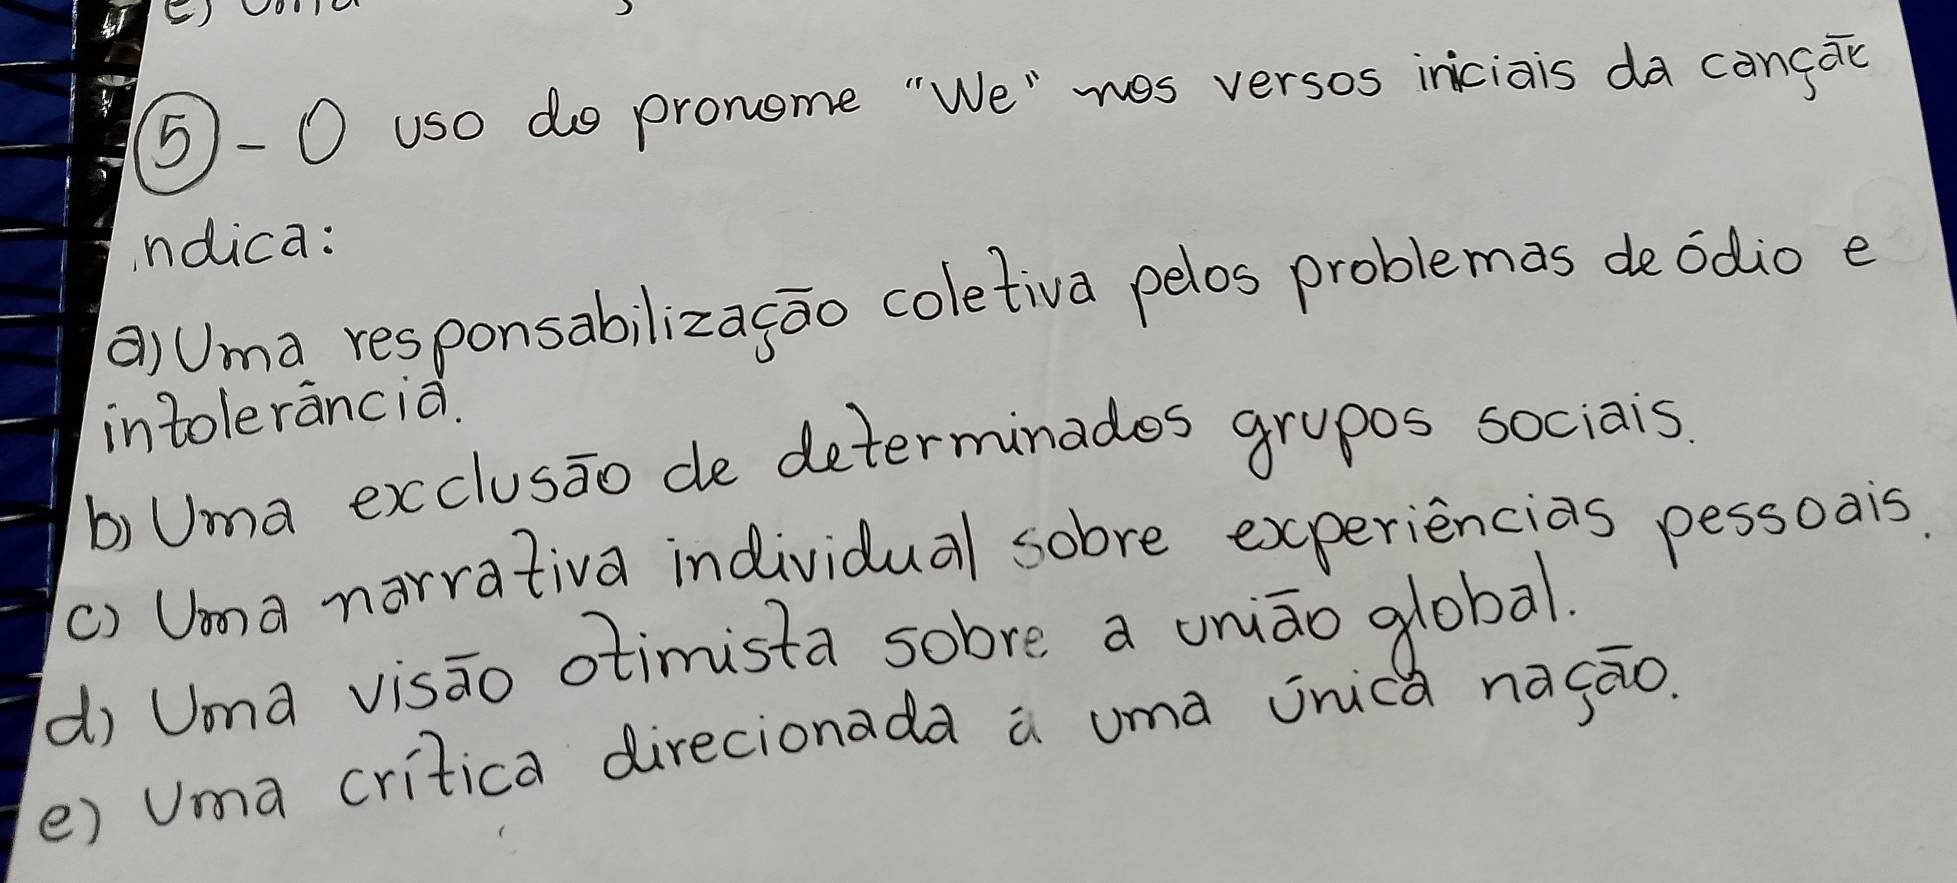 5 - O uso do pronome "We" nos versos iniciais da canção
indica:
a) Uma responsabilização coletiva pelos problemas de ódio e
intolerância.
b) Uma exclusão de determinados grupos sociais.
c) Uma narrativa individual sobre experiências pessoais.
d) Uma visão otimista sobre a união global.
e) Uma crítica direcionada à uma única nação.